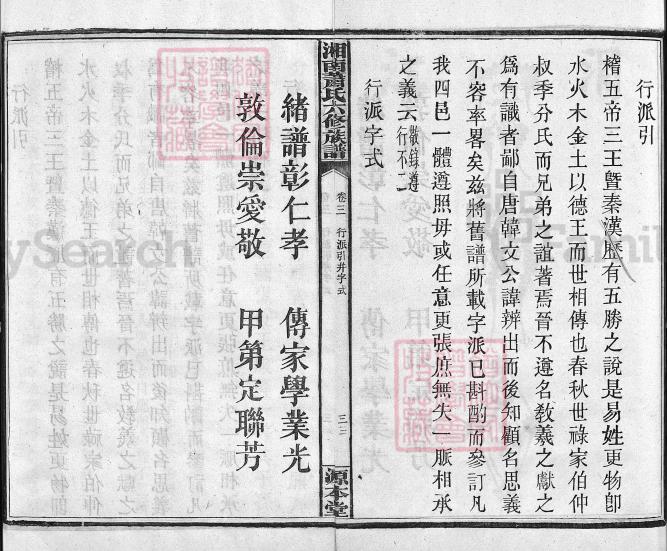 行派引
稽五帝三王曁秦漢歷有五勝之說是易姓更物卽
水火木金土以德王而世相傳也春秋世祿家伯仲
叔季分氏而兄弟之誼著焉晉不遵名敎義之獻之
爲有識者鄙自唐韓文公諱辨出而後知顧名思義
不容率畧矣兹將舊譜所載字派已斟酌而參訂凡
我四邑一體遵照毋或任意更張庶無失一脈相承
之義云 敬錄遵行不二
行派字式
湘南蕭氏六修族譜
卷三 行派引并字式
三三
源本堂
緒譜彰仁孝 傳家學業光
敦倫崇愛敬 甲第定聯芳
MySearch
Family